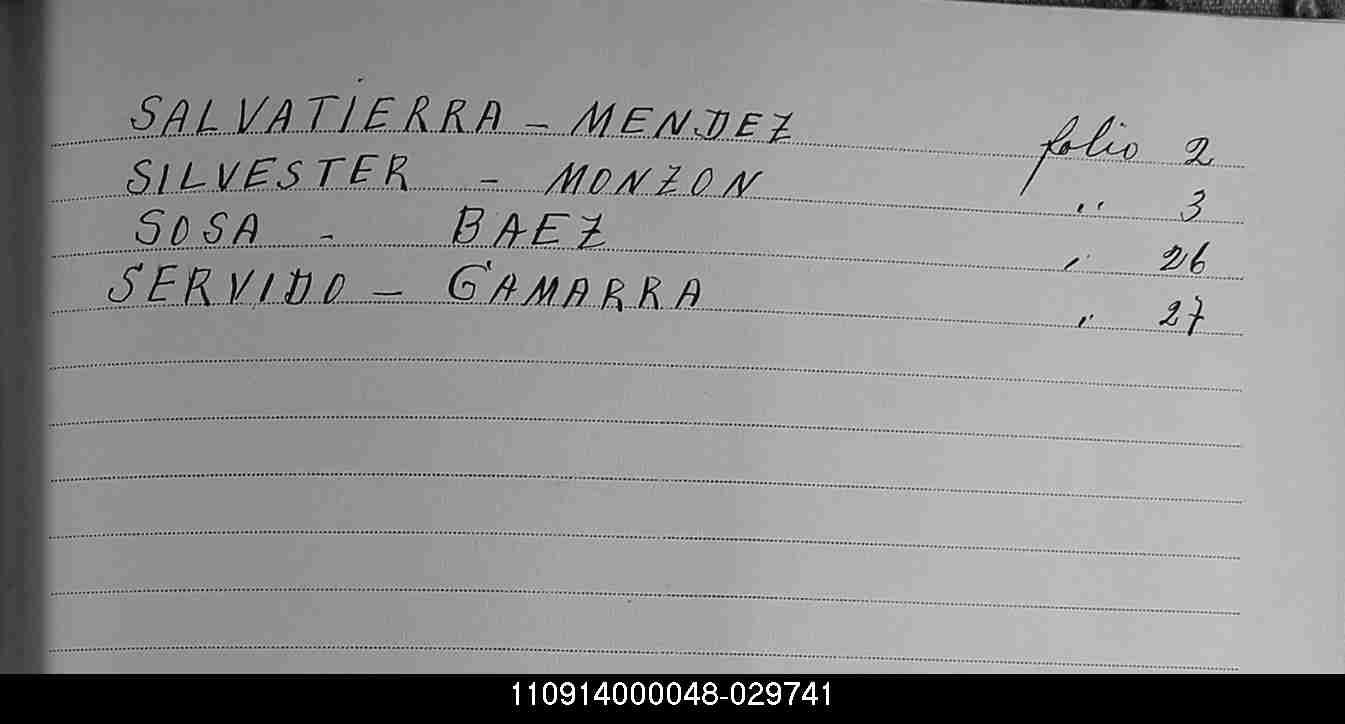 SALVATIERRA - MENDEZ folio 2
SILVESTER - MONZON " 3
SOSA - BAEZ " 26
SERVIDO - GAMARRA " 27
110914000048-029741